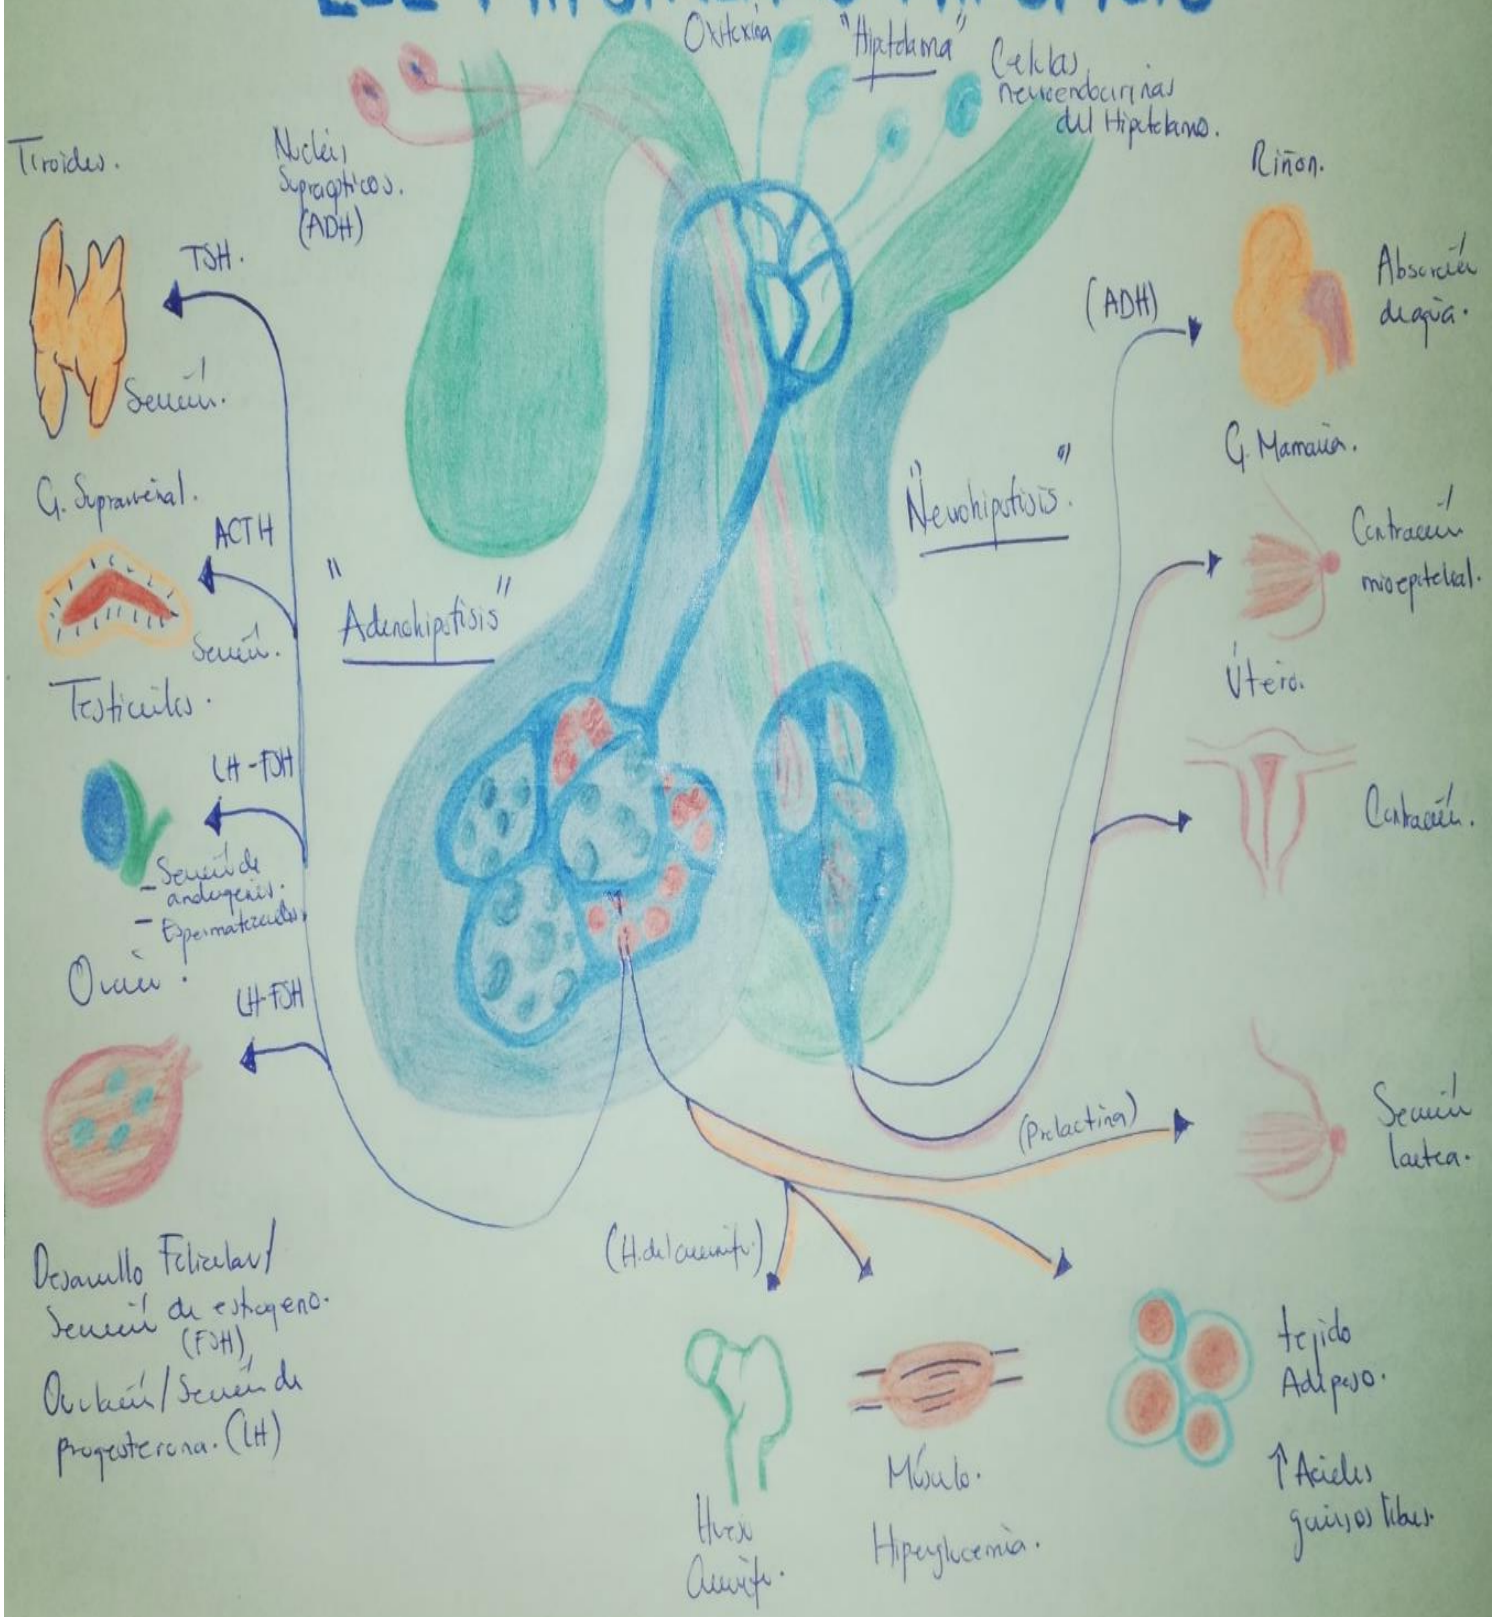 Oxitoxina
"Hipotálamo"
Células
neuroendocrinas
del Hipotálamo.
Nucleis
Supraopticos.
(ADH)
Tiroides.
TSH.
Secreción.
G. Suprarrenal.
ACTH
Secreción.
Testiculos.
LH-FSH
- Secreción de
androgenos.
- Espermatozoides.
Ovario.
LH-FSH
Desarrollo Folicular/
Secreción de estrogeno.
(FSH)
Ovulación/Secreción de
progesterona. (LH)
"Adenohipofisis"
"Neurohipofisis."
Riñon.
(ADH)
Absorción
de agua.
G. Mamaria.
Contracción
mioepitelial.
Útero.
Contracción.
(Prolactina)
Secreción
lactea.
(H. del crecimiento.)
Hueso
Músculo.
Hiperglucemia.
tejido
Adiposo.
↑ Acidos
grasos libres.